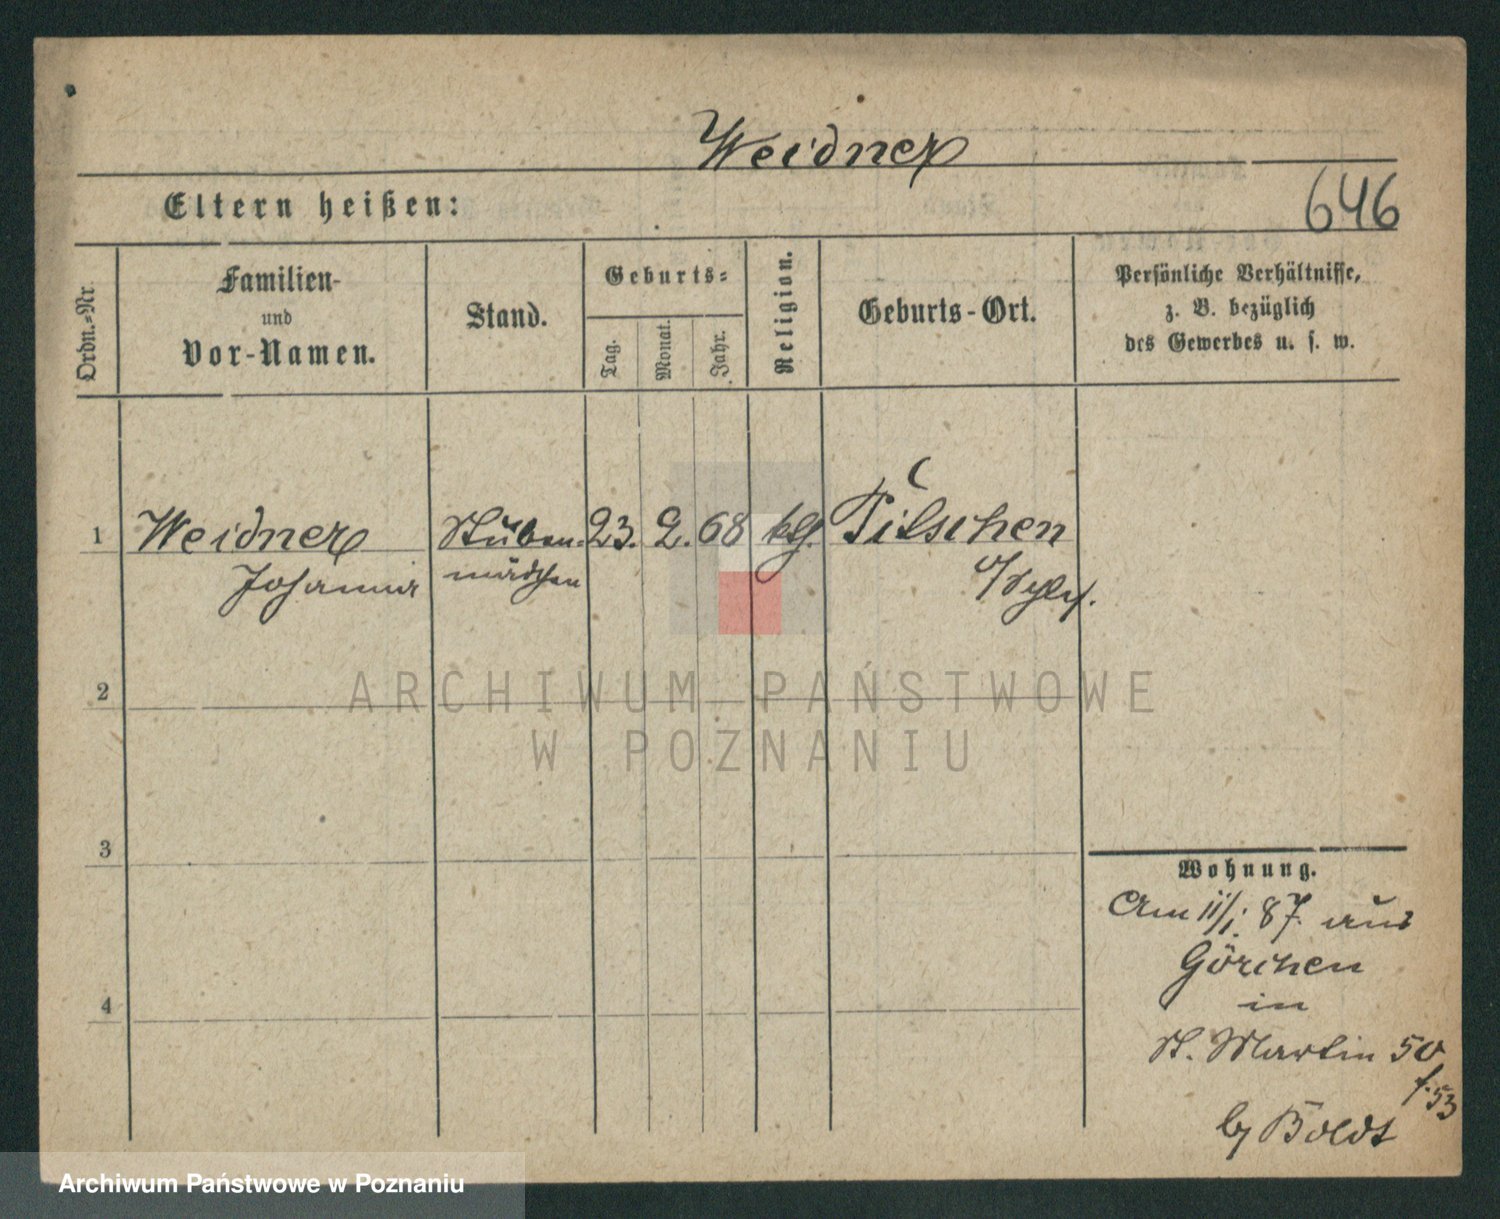 Weidner
Eltern heißen:
646
Ordn.-Nr.
Familien-
und
Vor-Namen.
Stand.
Geburts-
Tag.
Monat.
Jahr.
Religion.
Geburts-Ort.
Persönliche Verhältnisse,
z. B. bezüglich
des Gewerbes u. s. w.
1 Weidner Stuben- 23. 2. 68 ktg. Pitschen
Johanna mädchen
2
3
4
ARCHIWUM PAŃSTWOWE
W POZNANIU
Wohnung.
Am 11/1. 87. aus
Görchen
in
St. Martin 50
f. 53
by Boldt
Archiwum Państwowe w Poznaniu